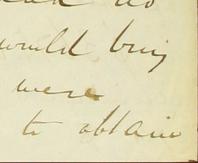 would buy
were
to obtain